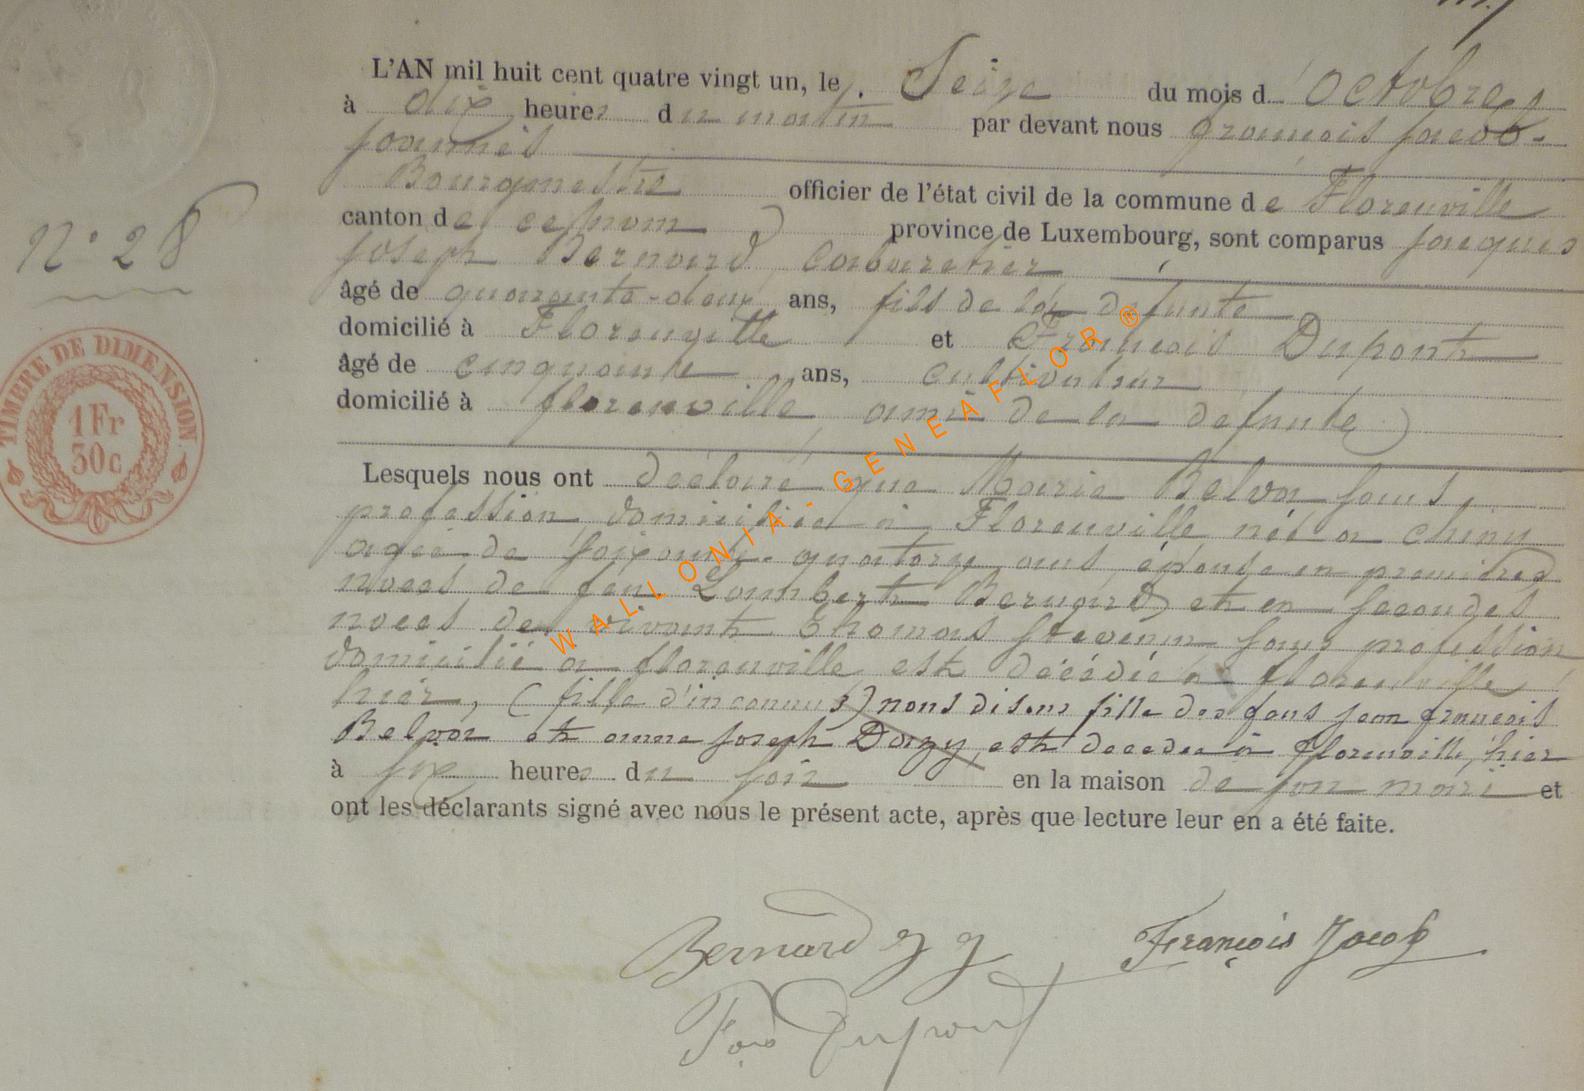 L'AN mil huit cent quatre vingt un, le Seize du mois d' octobre
à dix heures du matin par devant nous françois Jacob-
Joannes
Bourgmestre officier de l'état civil de la commune de Florenville
canton de ce nom province de Luxembourg, sont comparus Jacques
Joseph Bernard, Cabaretier
âgé de quarante-deux ans, fils de la défunte
domicilié à Florenville et François Dupont
âgé de cinquante ans, cultivateur
domicilié à florenville, ami de la défunte
Lesquels nous ont déclaré que Marie Belva sans
profession domiciliée à Florenville née a chiny
agée de soixante-quatorze ans, épouse en premières
noces de feu Lambert Bernard, et en secondes
noces de vivant Thomas Stevenin sans profession
domicilié à florenville est décédée à florenville
hier, (fille d'inconnus) nous disons fille des fous jean françois
Belva et anne joseph Dazy, est decedee à florenville, hier
à six heures du soir en la maison de son mari et
ont les déclarants signé avec nous le présent acte, après que lecture leur en a été faite.
N° 28
TIMBRE DE DIMENSION
1 Fr
30c
WALLONIA-GENEAFLOR®
Bernard J J François Jacob
Fois Dupont